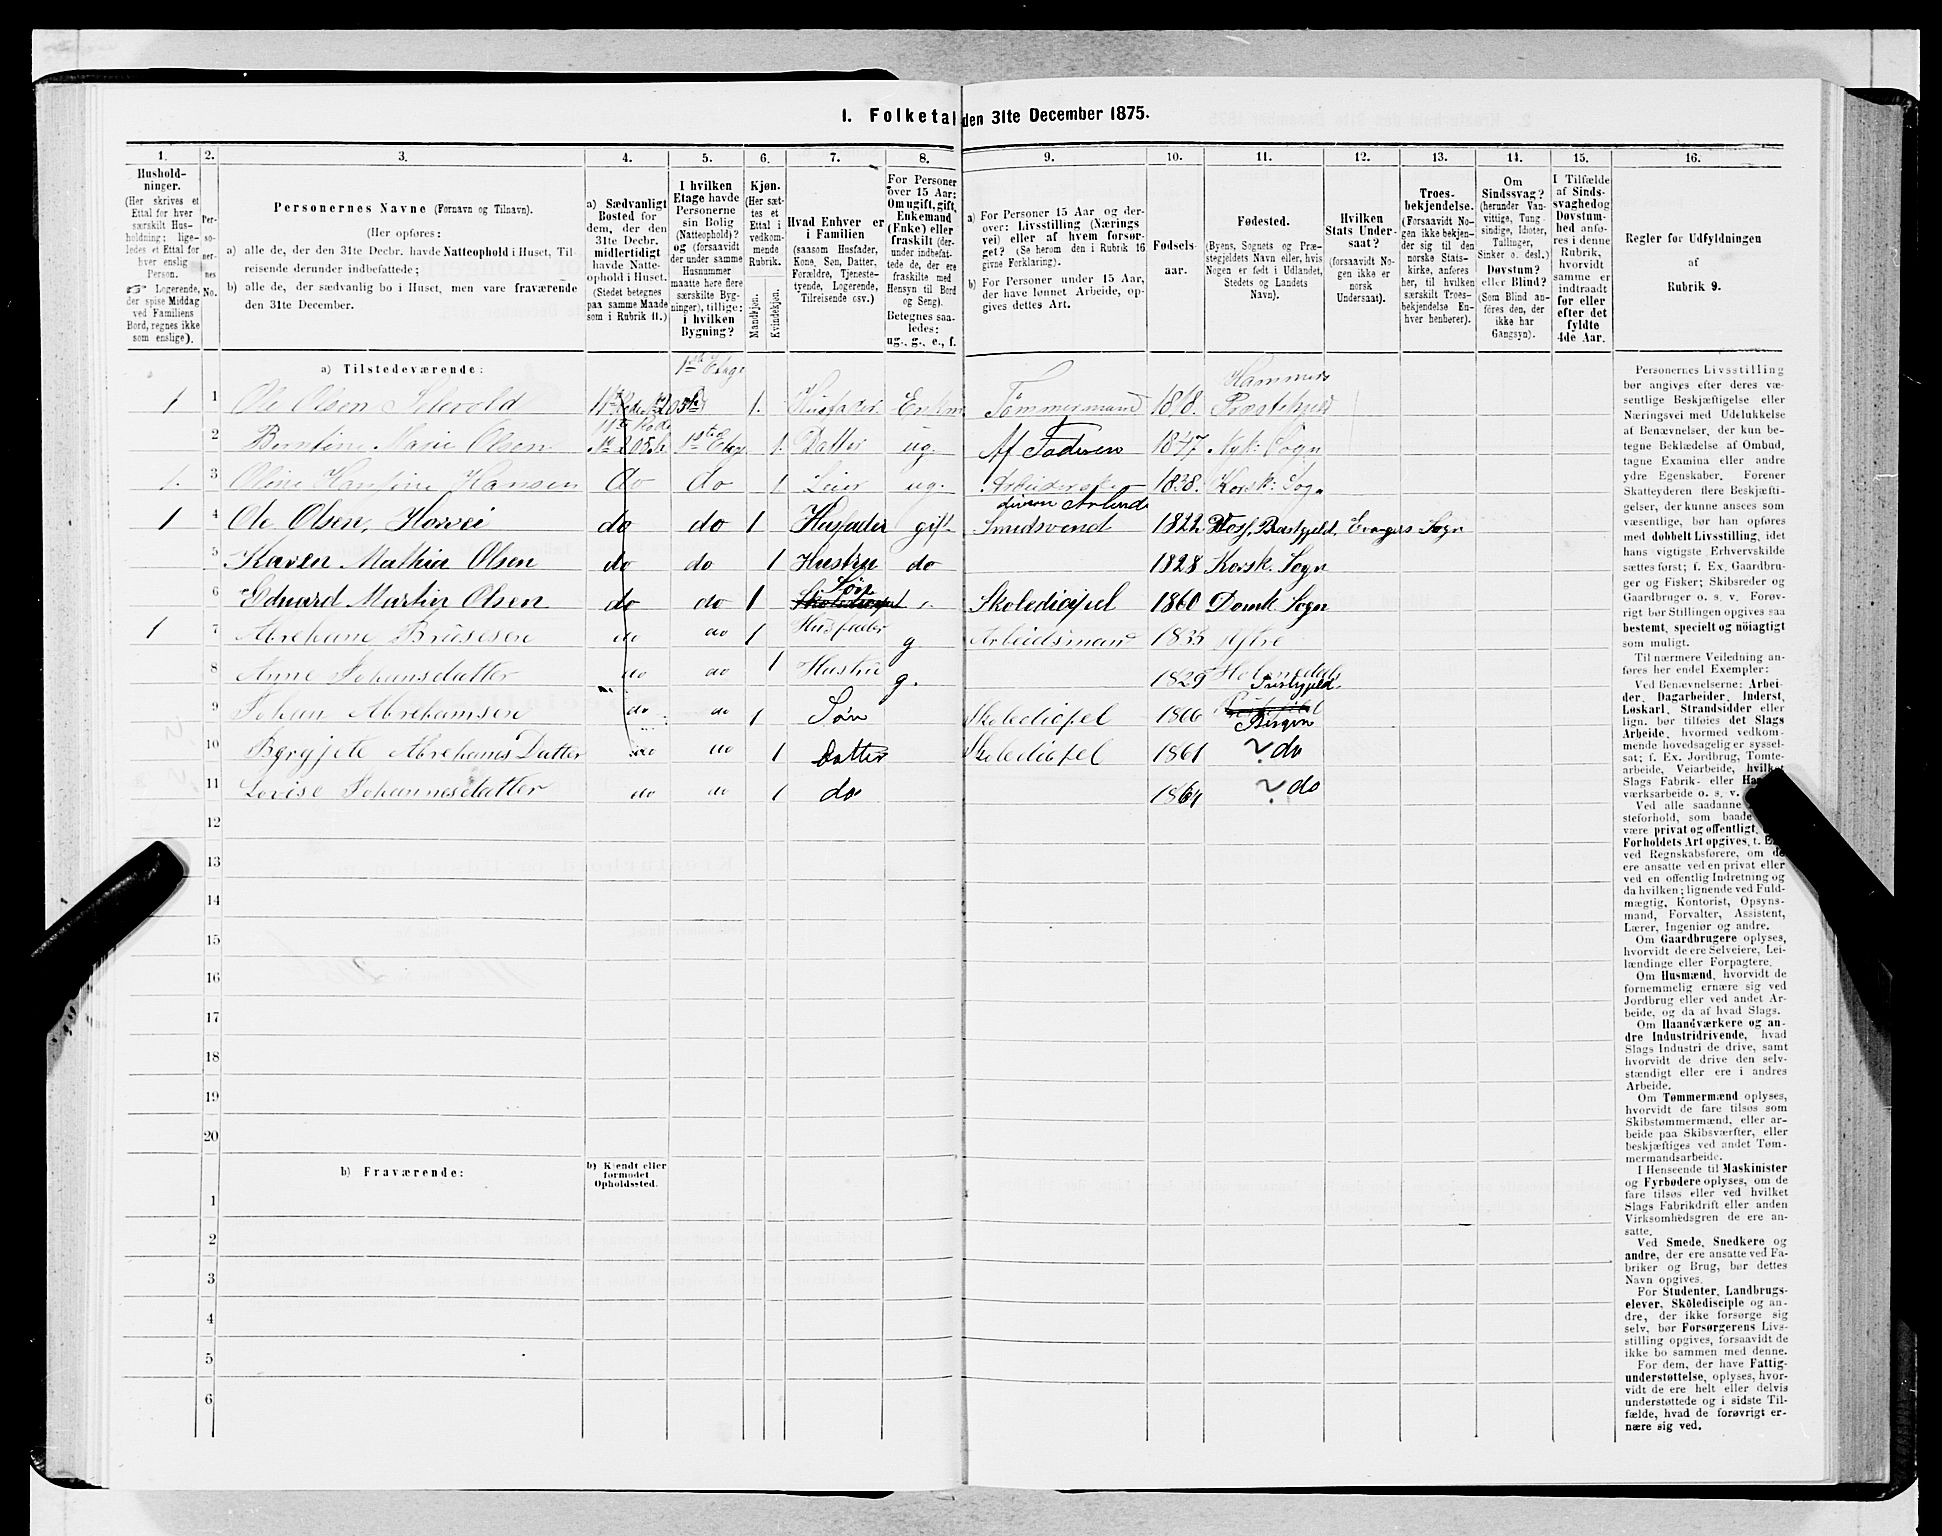 1. Folketal den 31te December 1875.
1. 2. 3. 4. 5. 6. 7. 8. 9. 10. 11. 12. 13. 14. 15. 16.
Hushold-
ninger.
(Her skrives et
Ettal for hver
særskilt Hus-
holdning; lige-
ledes et Ettal for
hver enslig
Person.
☞ Logerende,
der spise Middag
ved Familiens
Bord, regnes ikke
som enslige).
Per-
so-
ner-
nes
No.
Personernes Navne (Fornavn og Tilnavn).
(Her opføres:
a) alle de, der den 31te Decbr. havde Natteophold i Huset, Til-
reisende derunder indbefattede;
b) alle de, der sædvanlig bo i Huset, men vare fraværende
den 31te December.
a) Sædvanligt
Bosted for
dem, der den
31te Decbr.
midlertidigt
havde Natte-
ophold i Huset.
(Stedet betegnes
paa samme Maade
som i Rubrik 11.)
I hvilken
Etage havde
Personerne
sin Bolig
(Natteophold)?
og (forsaavidt
der under samme
Husnummer
maatte høre flere
særskilte Byg-
ninger), tillige:
i hvilken
Bygning?
Kjøn.
(Her sæt-
tes et
Ettal i
vedkom-
mende
Rubrik.
Mandkjøn.
Kvindekjøn.
Hvad Enhver er
i Familien
(saasom Husfader,
Kone, Søn, Datter,
Forældre, Tjeneste-
tyende, Logerende,
Tilreisende osv.)
For Personer
over 15 Aar:
Om ugift, gift,
Enkemand
(Enke) eller
fraskilt (der-
under indbefat-
tede de, der ere
fraskilte med
Hensyn til Bord
og Seng).
Betegnes saa-
ledes:
ug., g., e., f.
a) For Personer 15 Aar og der-
over: Livsstilling (Nærings-
vei) eller af hvem forsør-
get? (Se herom den i Rubrik 16
givne Forklaring).
b) For Personer under 15 Aar,
der have lønnet Arbeide, op-
gives dettes Art.
Fødsels-
aar.
Fødested.
(Byens, Sognets og Præ-
stegjeldets Navn eller, hvis
Nogen er født i Udlandet,
Stedets og Landets
Navn).
Hvilken
Stats Under-
saat?
(forsaavidt No-
gen ikke er
norsk
Undersaat).
Troes-
bekjendelse.
(Forsaavidt No-
gen ikke bekjen-
der sig til den
norske Stats-
kirke, anføres
her, til hvilken
særskilt Troes-
bekjendelse En-
hver henhører).
Om
Sindssvag?
(herunder Van-
vittige, Tung-
sindige, Idioter,
Tullinger,
Sinker o. desl.)
Døvstum?
eller Blind?
(Som Blind an-
føres den, der
ikke har
Gangsyn).
I Tilfælde
af Sinds-
svaghed og
Døvstum-
hed anfø-
res i denne
Rubrik,
hvorvidt
samme er
indtraadt
før eller
efter det
fyldte
4de Aar.
Regler for Udfyldningen
af
Rubrik 9.
a) Tilstedeværende:
1ste Etage
1 1 Ole Olsen Selevold 1. Husfader Enkm Tømmermand 1818. Hammers Præstegjeld
2 Berntine Marie Olsen No 205b 1ste Etage 1. Datter ug. Af Faderen 1847 Nyk: Sogn
1. 3 Oline Hansine Hansen do do 1 Leier ug. Arbeiderske 1838. Korsk: Sogn
1 4 Ole Olsen, Horvei do do 1 Husfader gift Smedsvend 1822 Voss Præstgjeld, Evangers Sogn
5 Karen Mathia Olsen do do 1 Hustru do 1828 Korsk. Sogn
6 Eduard Martin Olsen do do 1 Søn Skoledisipel 1860 Domk Sogn
1 7 Abreham Brusesen do do 1 Husfader g Arbeidsmand 1833 Ytre
8 Anne Johansdatter do do 1 Hustru g. 1829 Holmedals Prestgjeld.
9 Johan Abrehamsen do do 1 Søn Skoledicipel 1866 Bergen
10 Byrgjete Abrehams Datter do do 1 Datter Skoledicipel 1861 do
11 Lovise Johannesdatter do do 1 do 1864 do
12
13
14
15
16
17
18
19
20
b) Fraværende:
b) Kjendt eller
formodet
Opholdssted.
1
2
3
4
5
6
Personernes Livsstilling
bør angives efter deres væ-
sentlige Beskjæftigelse eller
Næringsvei med Udelukkelse
af Benævnelser, der kun be-
tegne Beklædelse af Ombud,
tagne Examina eller andre
ydre Egenskaber. Forener
Skatteyderen flere Beskjæfti-
gelser, der kunne ansees som
væsenlige, bør han opføres
med dobbelt Livsstilling, idet
hans vigtigste Erhvervskilde
sættes først; f. Ex. Gaardbru-
ger og Fisker; Skibsreder og
Gaardbruger o. s. v. Forøv-
rigt bør Stillingen opgives saa
bestemt, specielt og nöiagtigt
som muligt.
Til nærmere Veiledning an-
føres her endel Exempler:
Ved Benævnelserne: Arbei-
der, Dagarbeider, Inderst,
Løskarl, Strandsidder eller
lign. bør tilføies det Slags
Arbeide, hvormed vedkom-
mende hovedsagelig er syssel-
sat; f. Ex. Jordbrug, Tomte-
arbeide, Veiarbeide, hvilket
Slags Fabrik- eller
værksarbeide o. s. v.
Ved alle saadanne
steforhold, som baade
være privat og offentligt,
Forholdets Art opgives, t. Ex.
ved Regnskabsførere, om de
ere ansatte ved en privat eller
ved en offentlig Indretning og
da hvilken; lignende ved Fuld-
mægtig, Kontorist, Opsyns-
mand, Forvalter, Assistent,
Lærer, Ingeniør og andre.
Om Gaardbrugere oplyses,
hvorvidt de ere Selveiere, Lei-
lændinge eller Forpagtere.
Om Husmænd, hvorvidt de
fornemmelig ernære sig ved
Jordbrug eller ved andet Ar-
beide, og da af hvad Slags.
Om Haandværkere og an-
dre Industridrivende, hvad
Slags Industri de drive, samt
hvorvidt de drive den selv-
stændigt eller ere i andres
Arbeide.
Om Tømmermænd oplyses,
hvorvidt de fare tilsøs som
Skibstømmermænd, eller ar-
beide paa Skibsværfter, eller
beskjæftiges ved andet Tøm-
mermandsarbeide.
I Henseende til Maskinister
og Fyrbødere oplyses, om de
fare tilsøs eller ved hvilket
Slags Fabrikdrift eller anden
Virksomhedsgren de ere an-
satte.
Ved Smede, Snedkere og
andre, der ere ansatte ved Fa-
briker og Brug, bør dettes
Navn opgives.
For Studenter, Landbrugs-
elever, Skoledisciple og an-
dre, der ikke forsørge sig
selv, bør Forsørgerens Livs-
stilling opgives, forsaavidt de
ikke bo sammen med denne.
For dem, der have Fattig-
understøttelse, oplyses, hvor-
vidt de ere helt eller delvis
understøttede og i sidste Til-
fælde, hvad de forøvrigt er-
nære sig ved.